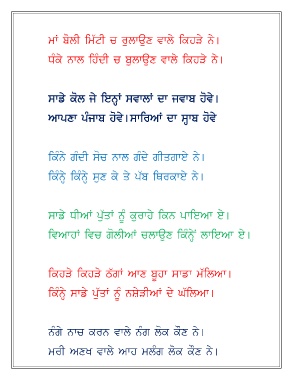 ਮਾਂ ਬੋਲੀ ਮਿੱਟੀ ਚ ਰੁਲਾਉਣ ਵਾਲੇ ਕਿਹੜੇ ਨੇ।
ਧੱਕੇ ਨਾਲ ਹਿੰਦੀ ਚ ਬੁਲਾਉਣ ਵਾਲੇ ਕਿਹੜੇ ਨੇ।
ਸਾਡੇ ਕੋਲ ਜੇ ਇਨ੍ਹਾਂ ਸਵਾਲਾਂ ਦਾ ਜਵਾਬ ਹੋਵੇ।
ਆਪਣਾ ਪੰਜਾਬ ਹੋਵੇ।ਸਾਰਿਆਂ ਦਾ ਸ੍ਵਾਬ ਹੋਵੇ
ਕਿੰਨੇ ਗੰਦੀ ਸੋਚ ਨਾਲ ਗੰਦੇ ਗੀਤਗਾਏ ਨੇ।
ਕਿੰਨ੍ਹੇ ਕਿੰਨ੍ਹੇ ਸੁਣ ਕੇ ਤੇ ਪੱਬ ਥਿਰਕਾਏ ਨੇ।
ਸਾਡੇ ਧੀਆਂ ਪੁੱਤਾਂ ਨੂੰ ਕੁਰਾਹੇ ਕਿਨ ਪਾਇਆ ਏ।
ਵਿਆਹਾਂ ਵਿਚ ਗੋਲੀਆਂ ਚਲਾਉਣ ਕਿੰਨ੍ਹੇਂ ਲਾਇਆ ਏ।
ਕਿਹੜੇ ਕਿਹੜੇ ਠੱਗਾਂ ਆਣ ਬੂਹਾ ਸਾਡਾ ਮੱਲਿਆ।
ਕਿੰਨ੍ਹੇ ਸਾਡੇ ਪੁੱਤਾਂ ਨੂੰ ਨਸ਼ੇੜੀਆਂ ਦੇ ਘੱਲਿਆ।
ਨੰਗੇ ਨਾਚ ਕਰਨ ਵਾਲੇ ਨੰਗ ਲੋਕ ਕੌਣ ਨੇ।
ਮਰੀ ਅਣਖ ਵਾਲੇ ਆਹ ਮਲੰਗ ਲੋਕ ਕੌਣ ਨੇ।